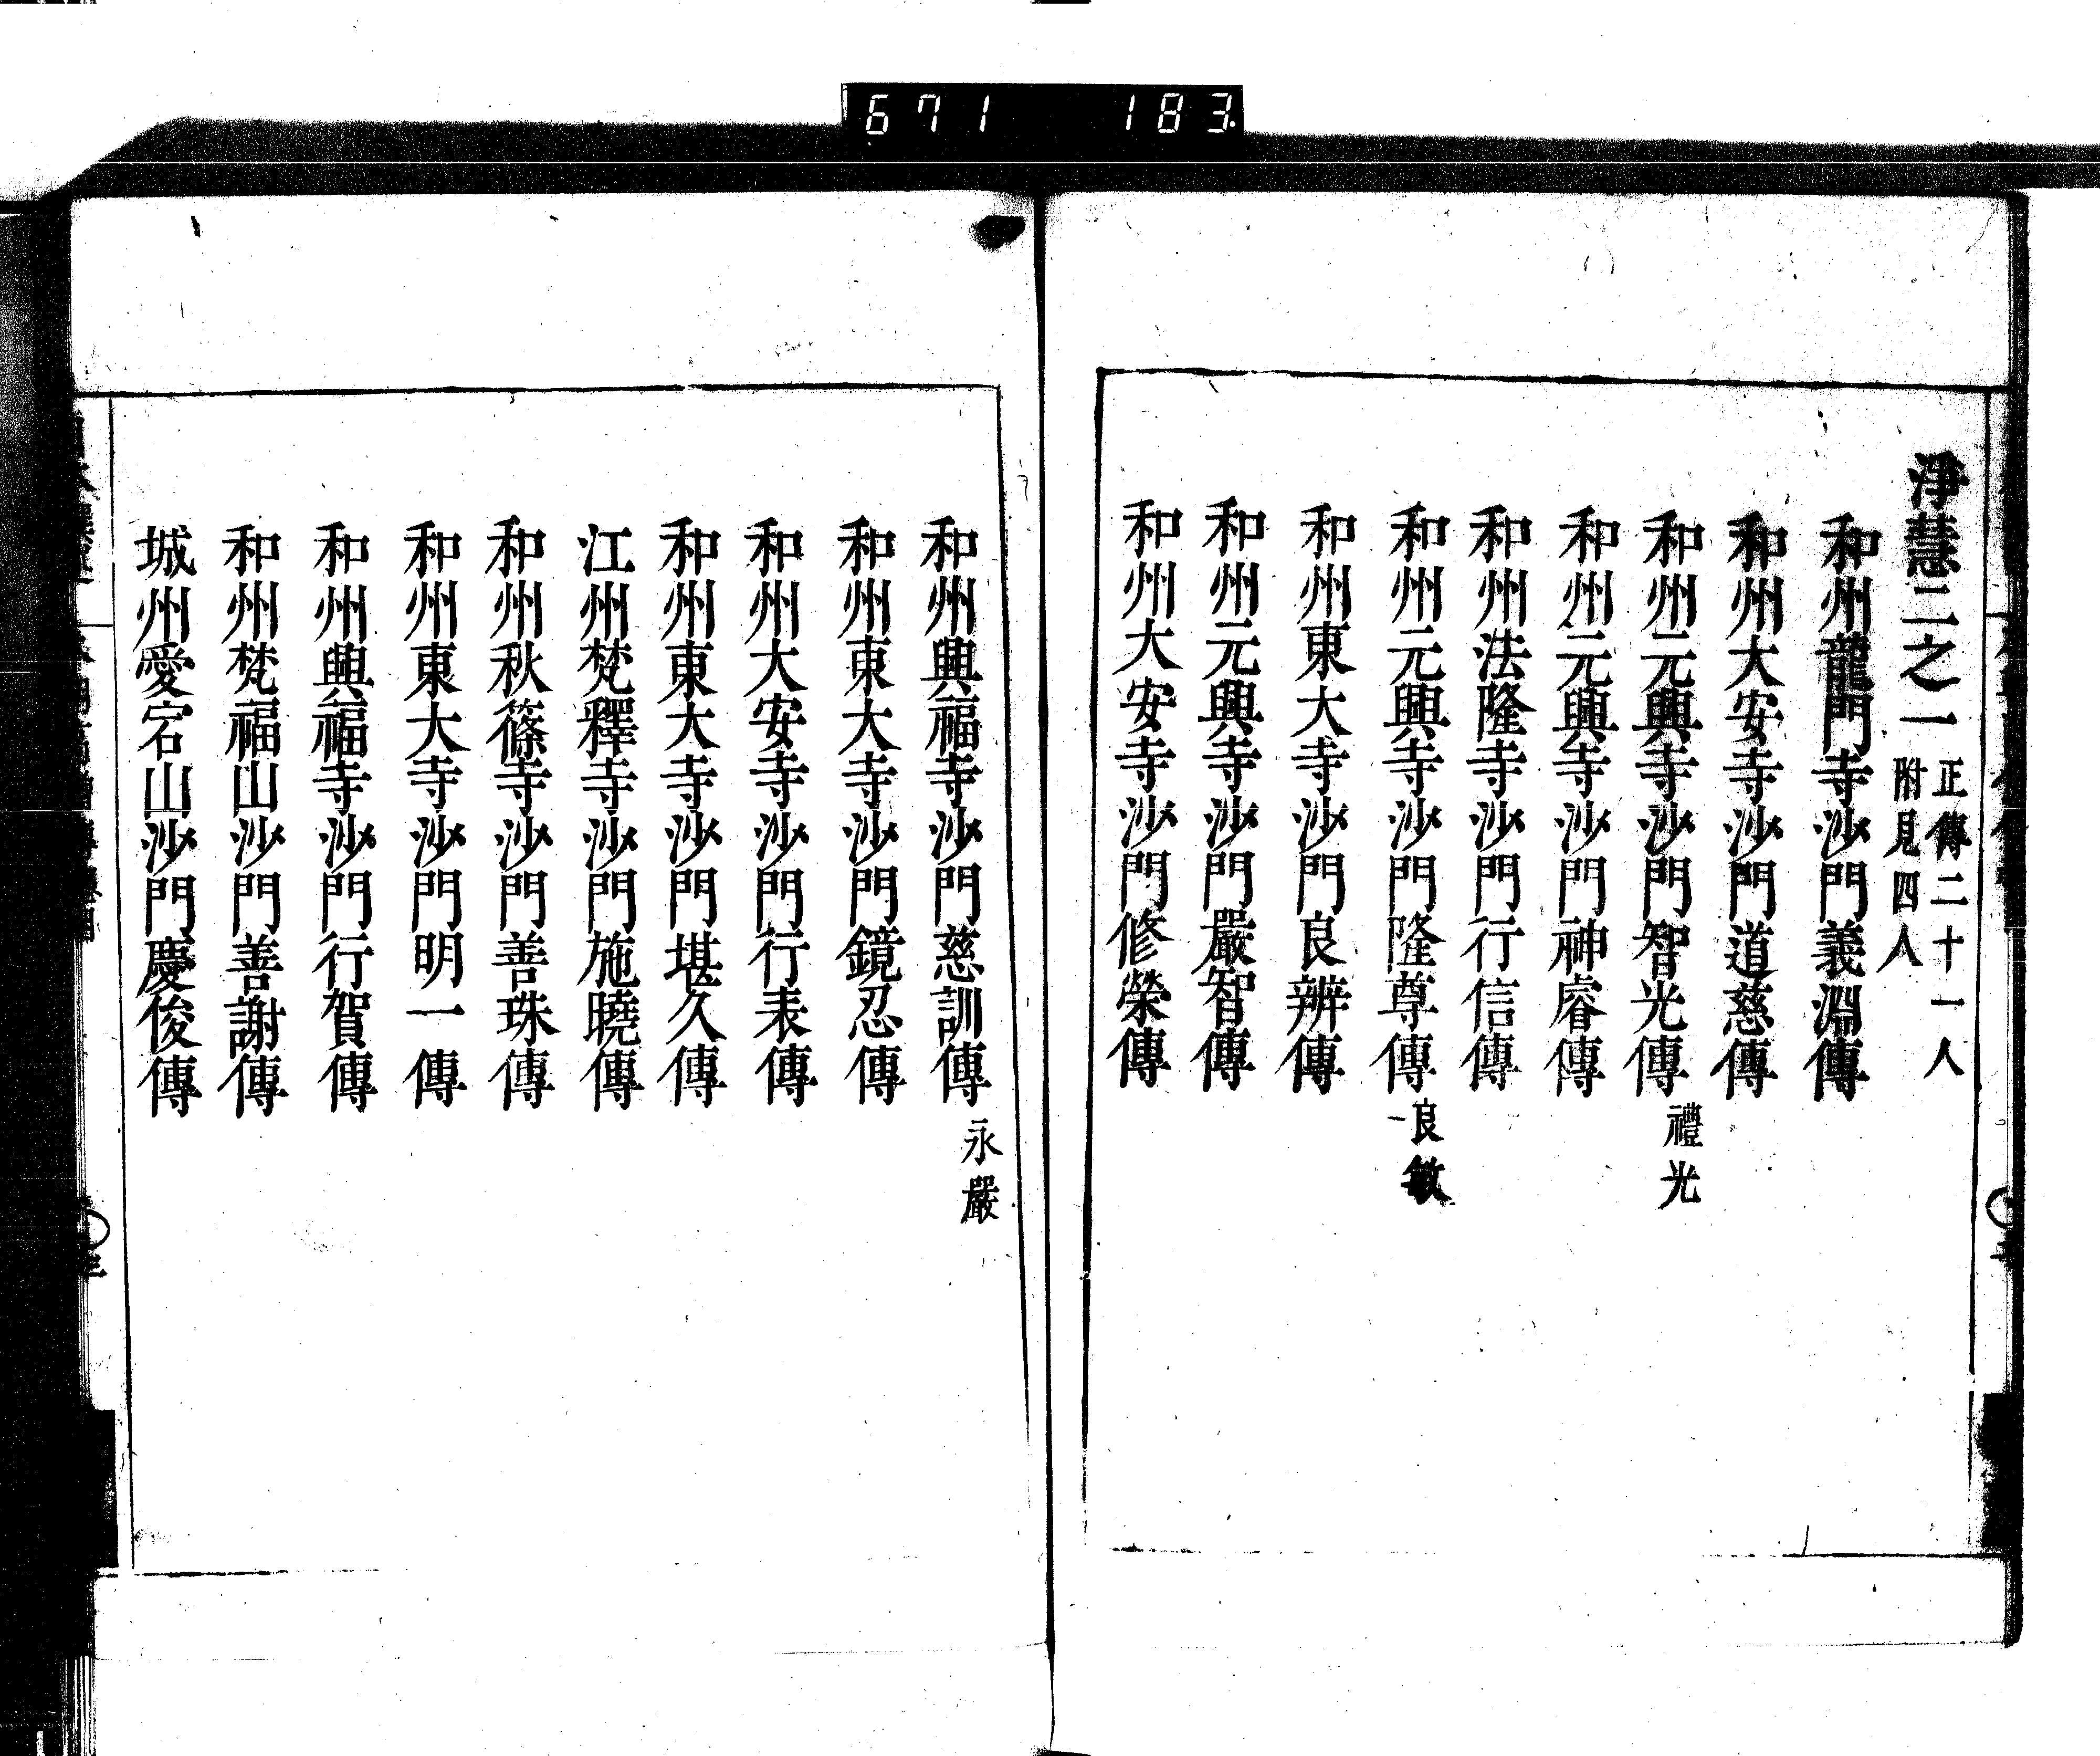 671 183
淨慧二之一 正傳二十一人 附見四人
和州龍門寺沙門義淵傳
和州大安寺沙門道慈傳
和州元興寺沙門智光傳 禮光
和州元興寺沙門神睿傳
和州法隆寺沙門行信傳
和州元興寺沙門隆尊傳 良敏
和州東大寺沙門良辨傳
和州元興寺沙門嚴智傳
和州大安寺沙門修榮傳
和州興福寺沙門慈訓傳 永嚴
和州東大寺沙門鏡忍傳
和州大安寺沙門行表傳
和州東大寺沙門堪久傳
江州梵釋寺沙門施曉傳
和州秋篠寺沙門善珠傳
和州東大寺沙門明一傳
和州興福寺沙門行賀傳
和州梵福山沙門善謝傳
城州愛宕山沙門慶俊傳